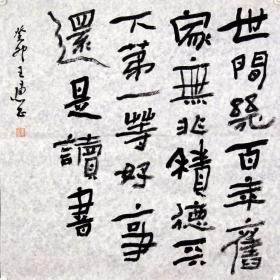 世間幾百年舊
家無非積德天
下第一等好事
還是讀書
癸卯王